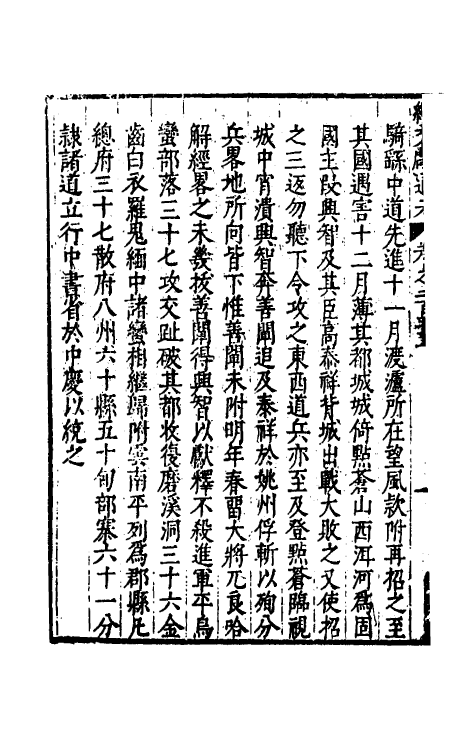 騎繇中道先進十一月渡瀘所在望風款附再招之至
其國遇害十二月薄其都城城倚點蒼山西洱河為固
國主段興智及其臣高泰祥背城出戰大敗之又使招
之三返勿聽下令攻之東西道兵亦至及登點蒼臨視
城中宵潰興智奔善闡追及泰祥於姚州俘斬以殉分
兵畧地所向皆下惟善闡未附明年春留大將兀良哈
解經畧之未幾拔善闡得興智以獻釋不殺進軍平烏
蠻部落三十七攻交趾破其都收復磨溪洞三十六金
齒白衣羅鬼緬中諸蠻相繼歸附雲南平列為郡縣凡
總府三十七散府八州六十縣五十甸部寨六十一分
隸諸道立行中書省於中慶以統之